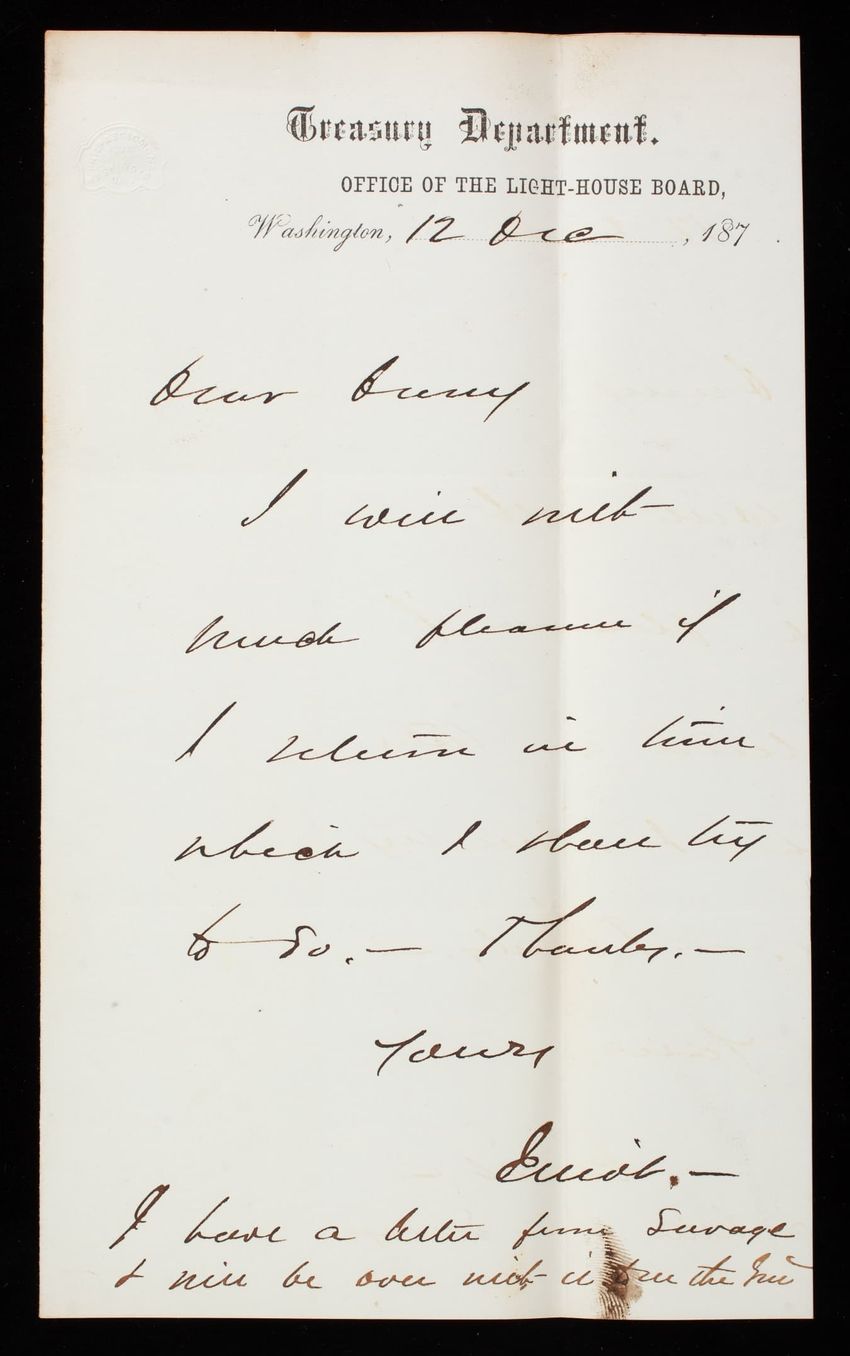 Treasury Department.
OFFICE OF THE LIGHT-HOUSE BOARD,
Washington, 12 Dec , 187 .
Dear
I will with
much pleasure if
I return in time
which I shall try
to do. — Thanks. —
Yours
Elliot. —
I have a letter from Savage
& will be over with it to see the